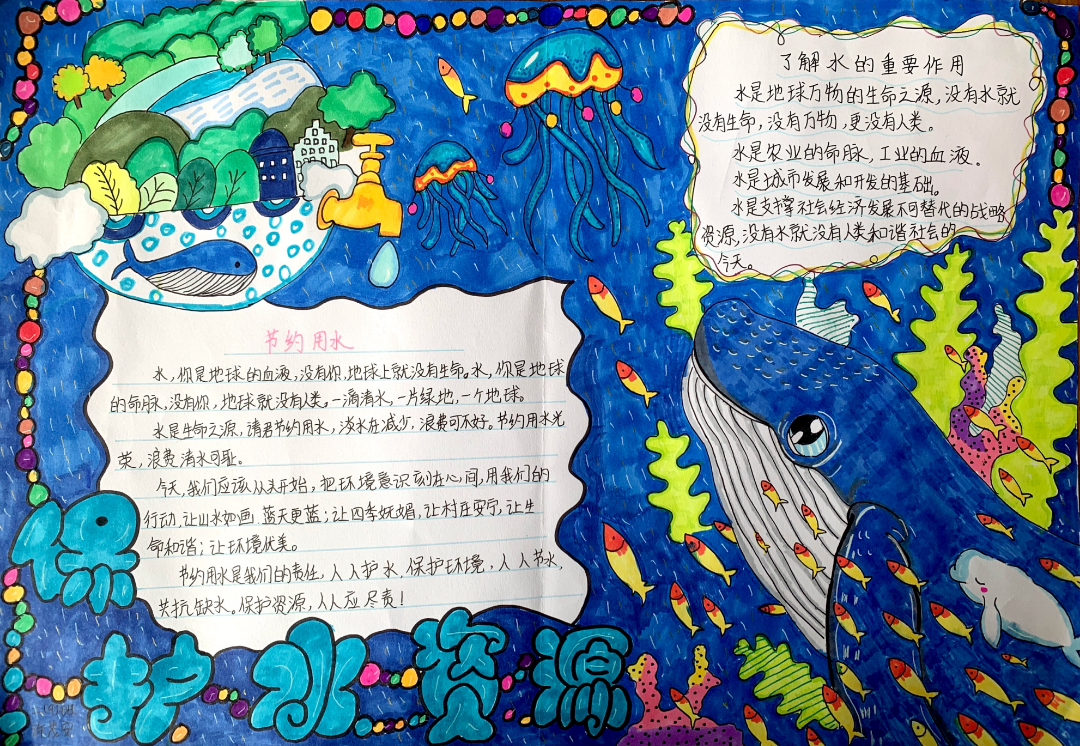 了解水的重要作用
水是地球万物的生命之源,没有水就
没有生命,没有万物,更没有人类。
水是农业的命脉,工业的血液。
水是城市发展和开发的基础。
水是支撑社会经济发展不可替代的战略
资源,没有水就没有人类和谐社会的
今天。
节约用水
水,你是地球的血液,没有你,地球上就没有生命。水,你是地球
的命脉,没有你,地球就没有人类,一滴清水,一片绿地,一个地球。
水是生命之源,请君节约用水,淡水在减少,浪费可不好。节约用水光
荣,浪费清水可耻。
今天,我们应该从头开始,把环境意识刻在心间,用我们的
行动,让山水如画,蓝天更蓝;让四季妩媚,让村庄安宁,让生
命和谐;让环境优美。
节约用水是我们的责任,人人护水,保护环境,人人节水,
共抗缺水。保护资源,人人应尽责!
保护水资源